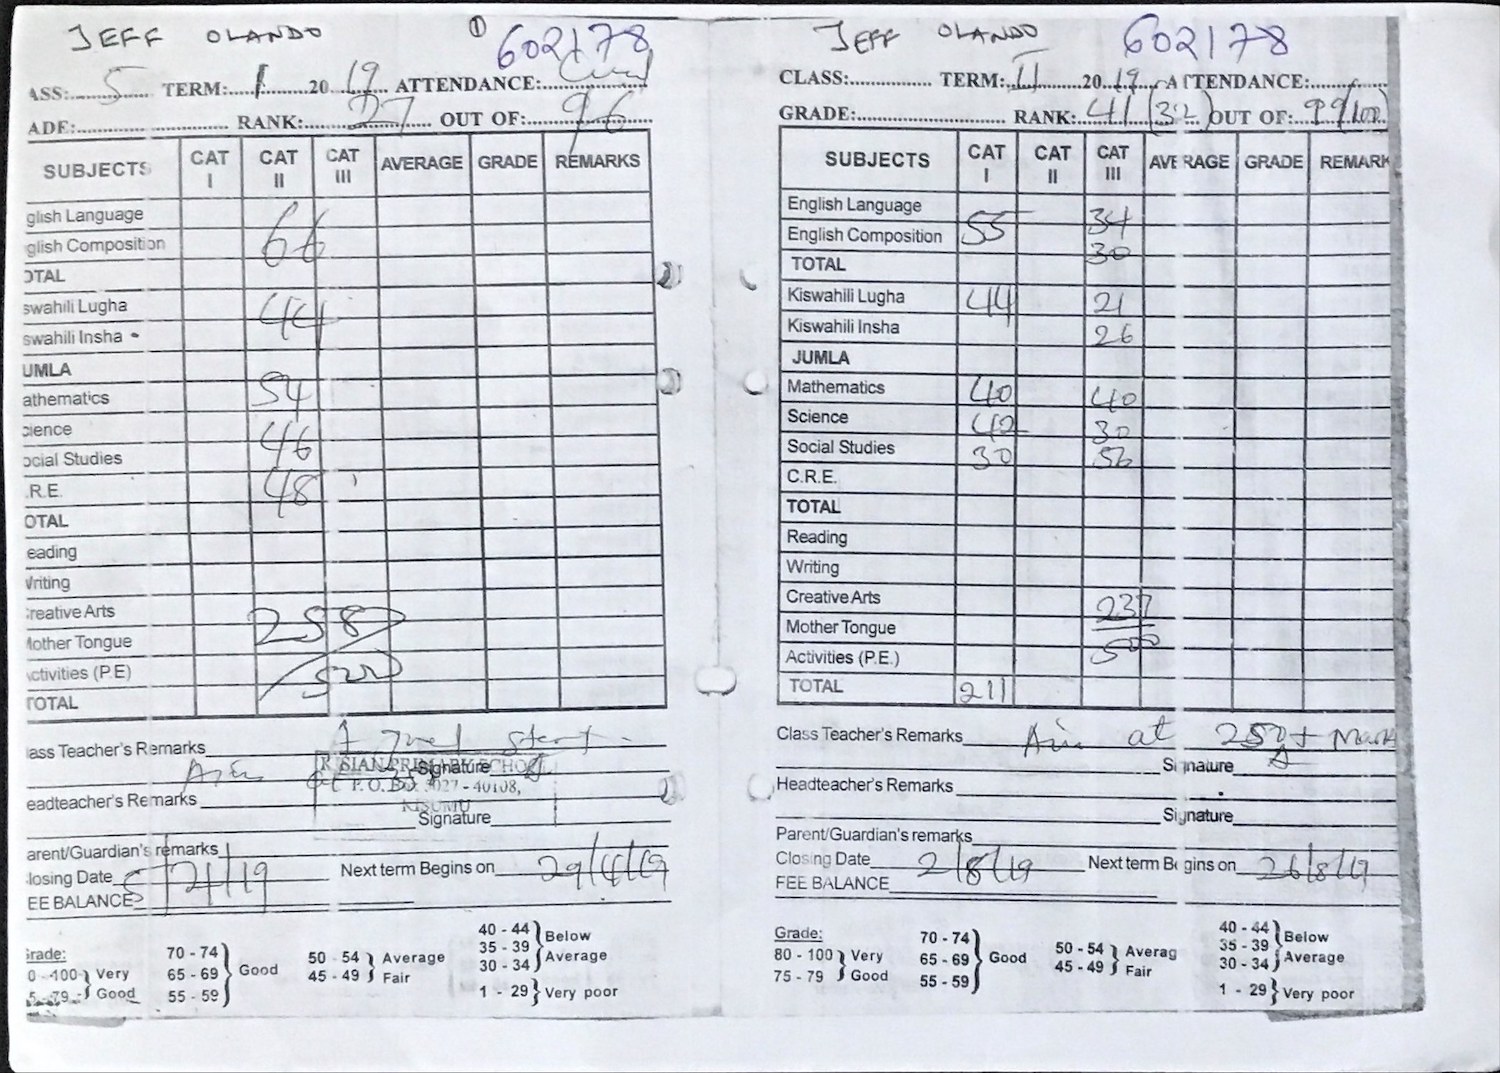 JEFF OLANDO 1 602178
ASS: 5 TERM: 1 2019 ATTENDANCE:
ADE: RANK: 27 OUT OF: 96
SUBJECTS CAT I CAT II CAT III AVERAGE GRADE REMARKS
glish Language
glish Composition 66
OTAL
swahili Lugha 44
swahili Insha
UMLA
athematics 54
cience 46
ocial Studies
.R.E. 48
OTAL
eading
Writing
reative Arts
Mother Tongue 258
ctivities (P.E) 500
TOTAL
ass Teacher's Remarks A
Signature
PRIMARY SCHOOL
P.O. BOX 3027 - 40108,
KISUMU
eadteacher's Remarks
Signature
arent/Guardian's remarks
losing Date 5/4/19 Next term Begins on 29/4/19
EE BALANCE
Grade:
0 - 100 Very
5 - 79 Good
70 - 74
65 - 69 Good
55 - 59
50 - 54 Average
45 - 49 Fair
40 - 44 Below
35 - 39 Average
30 - 34
1 - 29 Very poor
JEFF OLANDO 602178
CLASS: TERM: II 2019 ATTENDANCE:
GRADE: RANK: 41 (32) OUT OF: 99/100
SUBJECTS CAT I CAT II CAT III AVERAGE GRADE REMARK
English Language 34
English Composition 55 30
TOTAL
Kiswahili Lugha 44 21
Kiswahili Insha 26
JUMLA
Mathematics 40 40
Science 42 30
Social Studies 30 56
C.R.E.
TOTAL
Reading
Writing
Creative Arts 237
Mother Tongue
Activities (P.E.) 500
TOTAL 211
Class Teacher's Remarks Aim at 250+ Mark
Signature
Headteacher's Remarks
Signature
Parent/Guardian's remarks
Closing Date 2/8/19 Next term Begins on 26/8/19
FEE BALANCE
Grade:
80 - 100 Very
75 - 79 Good
70 - 74
65 - 69 Good
55 - 59
50 - 54 Averag
45 - 49 Fair
40 - 44 Below
35 - 39 Average
30 - 34
1 - 29 Very poor